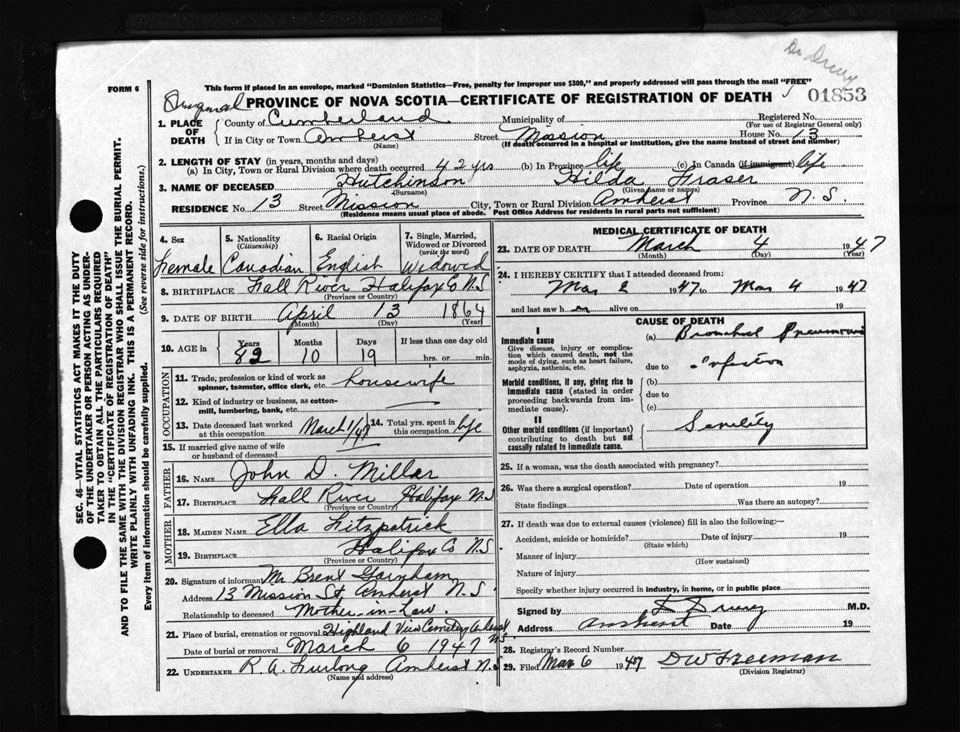 Dr Drury
This form if placed in an envelope, marked "Dominion Statistics—Free, penalty for improper use $300," and properly addressed will pass through the mail "FREE"
FORM 6
Original PROVINCE OF NOVA SCOTIA—CERTIFICATE OF REGISTRATION OF DEATH 01853
1. PLACE OF DEATH
County of Cumberland Municipality of Registered No.
(For use of Registrar General only)
If in City or Town Amherst Street Mission House No. 13
(Name) (If death occurred in a hospital or institution, give the name instead of street and number)
2. LENGTH OF STAY (in years, months and days)
(a) In City, Town or Rural Division where death occurred 42 yrs (b) In Province life (c) In Canada (if immigrant) life
3. NAME OF DECEASED Hutchinson Hilda Fraser
(Surname) (Given name or names)
RESIDENCE No 13 Street Mission City, Town or Rural Division Amherst Province N.S.
(Residence means usual place of abode. Post Office Address for residents in rural parts not sufficient)
4. Sex 5. Nationality (Citizenship) 6. Racial Origin 7. Single, Married, Widowed or Divorced (write the word)
Female Canadian English Widowed
8. BIRTHPLACE Fall River Halifax Co N.S
(Province or Country)
9. DATE OF BIRTH April 13 1864
(Month) (Day) (Year)
10. AGE in Years Months Days If less than one day old
82 10 19 hrs. or min.
OCCUPATION
11. Trade, profession or kind of work as spinner, teamster, office clerk, etc. housewife
12. Kind of industry or business, as cotton-mill, lumbering, bank, etc. —
13. Date deceased last worked at this occupation March 1/47 14. Total yrs. spent in this occupation life
15. If married give name of wife or husband of deceased —
FATHER
16. Name John D. Millar
17. Birthplace Fall River Halifax N.S
(Province or Country)
MOTHER
18. Maiden Name Ella Fitzpatrick
19. Birthplace Halifax Co N.S
(Province or Country)
20. Signature of informant Mr Brent Garnham
Address 13 Mission St. Amherst N.S.
Relationship to deceased Mother-in-Law.
21. Place of burial, cremation or removal Highland View Cemetery Amherst N.S
Date of burial or removal March 6 1947
22. UNDERTAKER R.A. Furlong Amherst N.S
(Name and address)
MEDICAL CERTIFICATE OF DEATH
23. DATE OF DEATH March 4 1947
(Month) (Day) (Year)
24. I HEREBY CERTIFY that I attended deceased from:
Mar 2 1947 to Mar 4 1947
and last saw h alive on 19
CAUSE OF DEATH
I
Immediate cause (a) Bronchial Pneumonia
Give disease, injury or complication which caused death, not the mode of dying, such as heart failure, asphyxia, asthenia, etc.
due to Infection
Morbid conditions, if any, giving rise to immediate cause (stated in order proceeding backwards from immediate cause).
(b)
due to
(c)
II
Other morbid conditions (if important) contributing to death but not causally related to immediate cause.
Senility
25. If a woman, was the death associated with pregnancy?
26. Was there a surgical operation? Date of operation 19
State findings Was there an autopsy?
27. If death was due to external causes (violence) fill in also the following:—
Accident, suicide or homicide? Date of injury 19
(State which)
Manner of injury
(How sustained)
Nature of injury
Specify whether injury occurred in industry, in home, or in public place
Signed by D Drury M.D.
Address Amherst Date 19
28. Registrar's Record Number
29. Filed Mar 6 1947 D W Freeman
(Division Registrar)
SEC. 46—VITAL STATISTICS ACT MAKES IT THE DUTY
OF THE UNDERTAKER OR PERSON ACTING AS UNDERTAKER
TO OBTAIN ALL THE PARTICULARS REQUIRED
IN THE "CERTIFICATE OF REGISTRATION OF DEATH"
AND TO FILE THE SAME WITH THE DIVISION REGISTRAR WHO SHALL ISSUE THE BURIAL PERMIT.
WRITE PLAINLY WITH UNFADING INK. THIS IS A PERMANENT RECORD.
Every item of information should be carefully supplied. (See reverse side for instructions.)